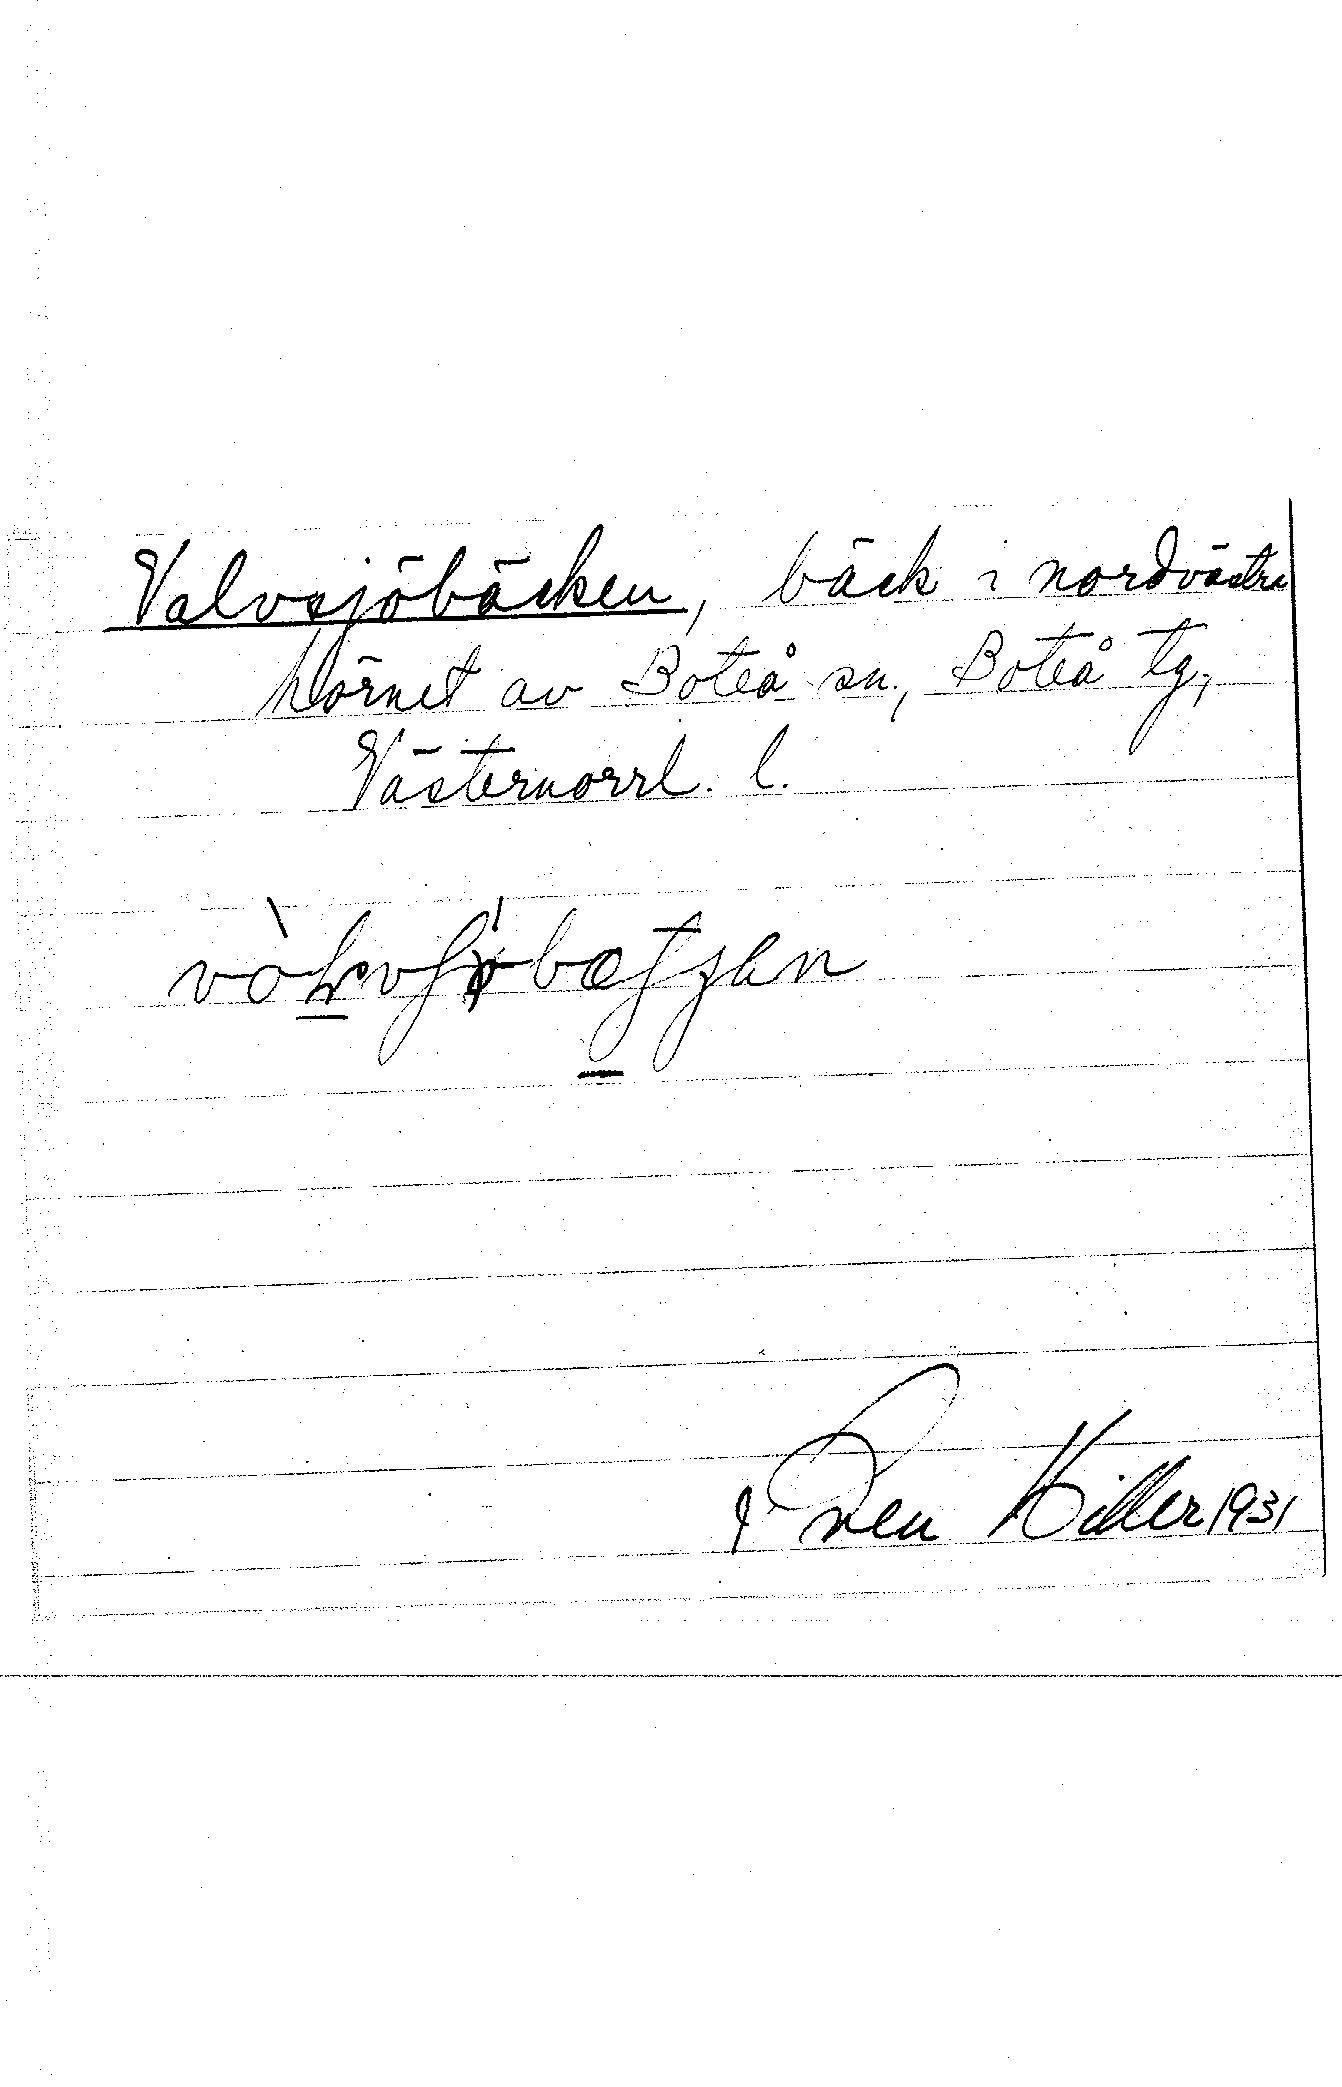 Valvsjöbäcken, bäck i nordvästra
hörnet av Boteå sn., Boteå tg,
Västernorrl. l.
Sven Hiller 1931